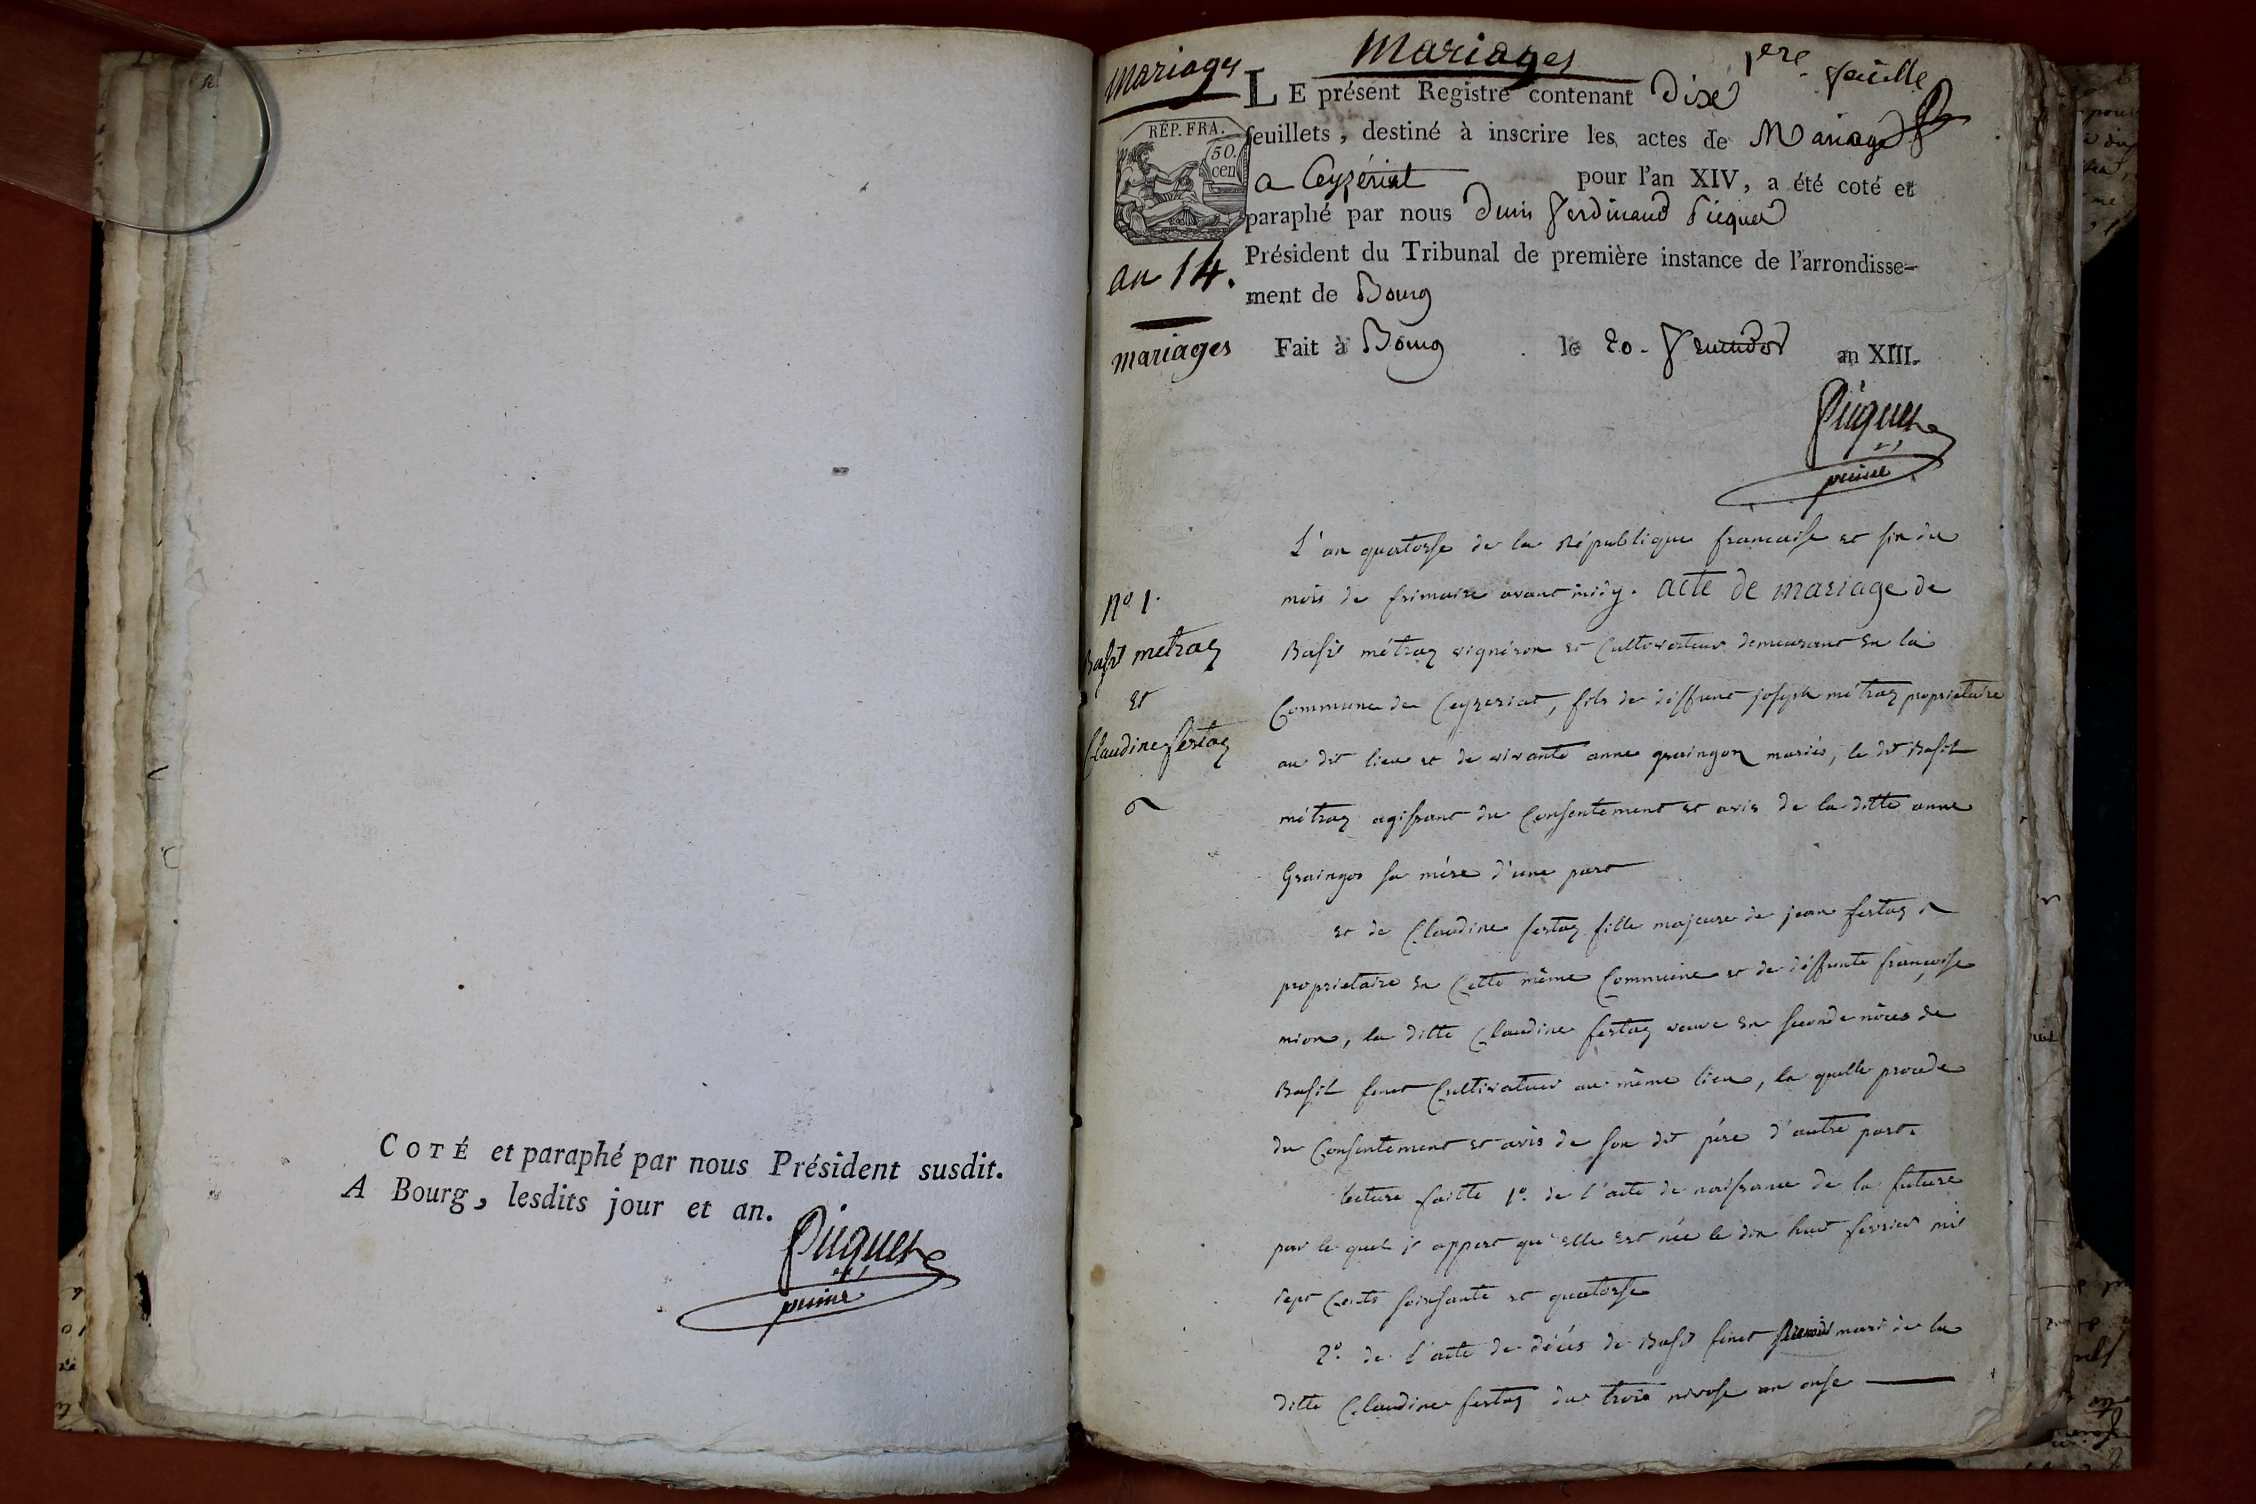 COTÉ et paraphé par nous Président susdit.
A Bourg, lesdits jour et an.
Picquet
Mariages
Mariages
1ere feuille
RÉP. FRA.
50.
cen
an 14.
mariages
LE présent Registre contenant dixe
feuillets, destiné à inscrire les actes de Mariage
a Ceyzériat pour l'an XIV, a été coté et
paraphé par nous Denis Ferdinand Picquet
Président du Tribunal de première instance de l'arrondisse-
ment de Bourg
Fait à Bourg le 20. fructidor an XIII.
Picquet
No 1.
Basil metraz
et
Claudine fertaz
L'an quatorse de la République francaise et six du
mois de frimaire avant midy. acte de mariage de
Basil métraz vigneron et Cultivateur demeurant en la
Commune de Ceyzeriat, fils de deffunt joseph métraz propriétaire
au dit lieu et de vivante anne graingon mariés, le dit Basil
métraz agissant du Consentement et avis de la ditte anne
Graingon sa mére d'une part
et de Claudine fertaz fille majeure de jean fertaz
propriétaire en Cette même Commune et de déffunte françoise
mion, la ditte Claudine fertaz veuve en seconde nôces de
Basil feret Cultivateur au même lieu, la quelle procede
du Consentement et avis de son dit pére d'autre part.
lecture faitte 1o. de l'acte de naissance de la future
par le quel il appert qu'elle est née le dix huit fevrier mil
sept Cents soixante et quatorse
2o. de l'acte de décés de Basil feret mari de la
ditte Claudine fertaz du trois nivose an onse